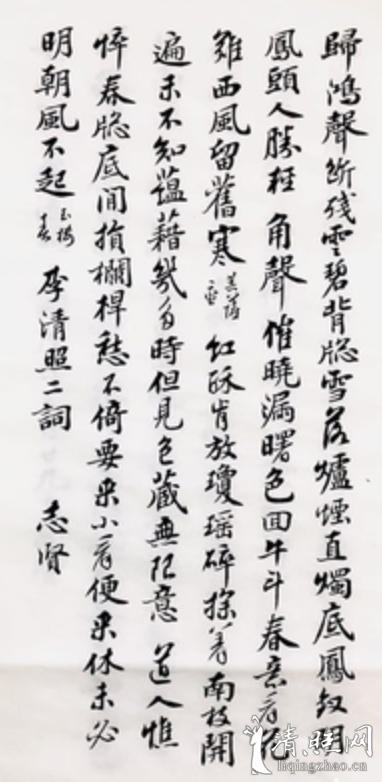 歸鴻聲斷殘雲碧背牕雪落爐煙直燭底鳳釵明
鳳頭人勝輕角聲催曉漏曙色回牛斗春意看花
難西風留舊寒菩薩蠻紅酥肯放瓊瑤碎探著南枝開
遍未不知蘊藉幾多時但見包藏無限意道人憔
悴春牕底間損欄桿愁不倚要來小看便來休未必
明朝風不起玉樓春李清照二詞志賢
清照网
liqingzhao.cn